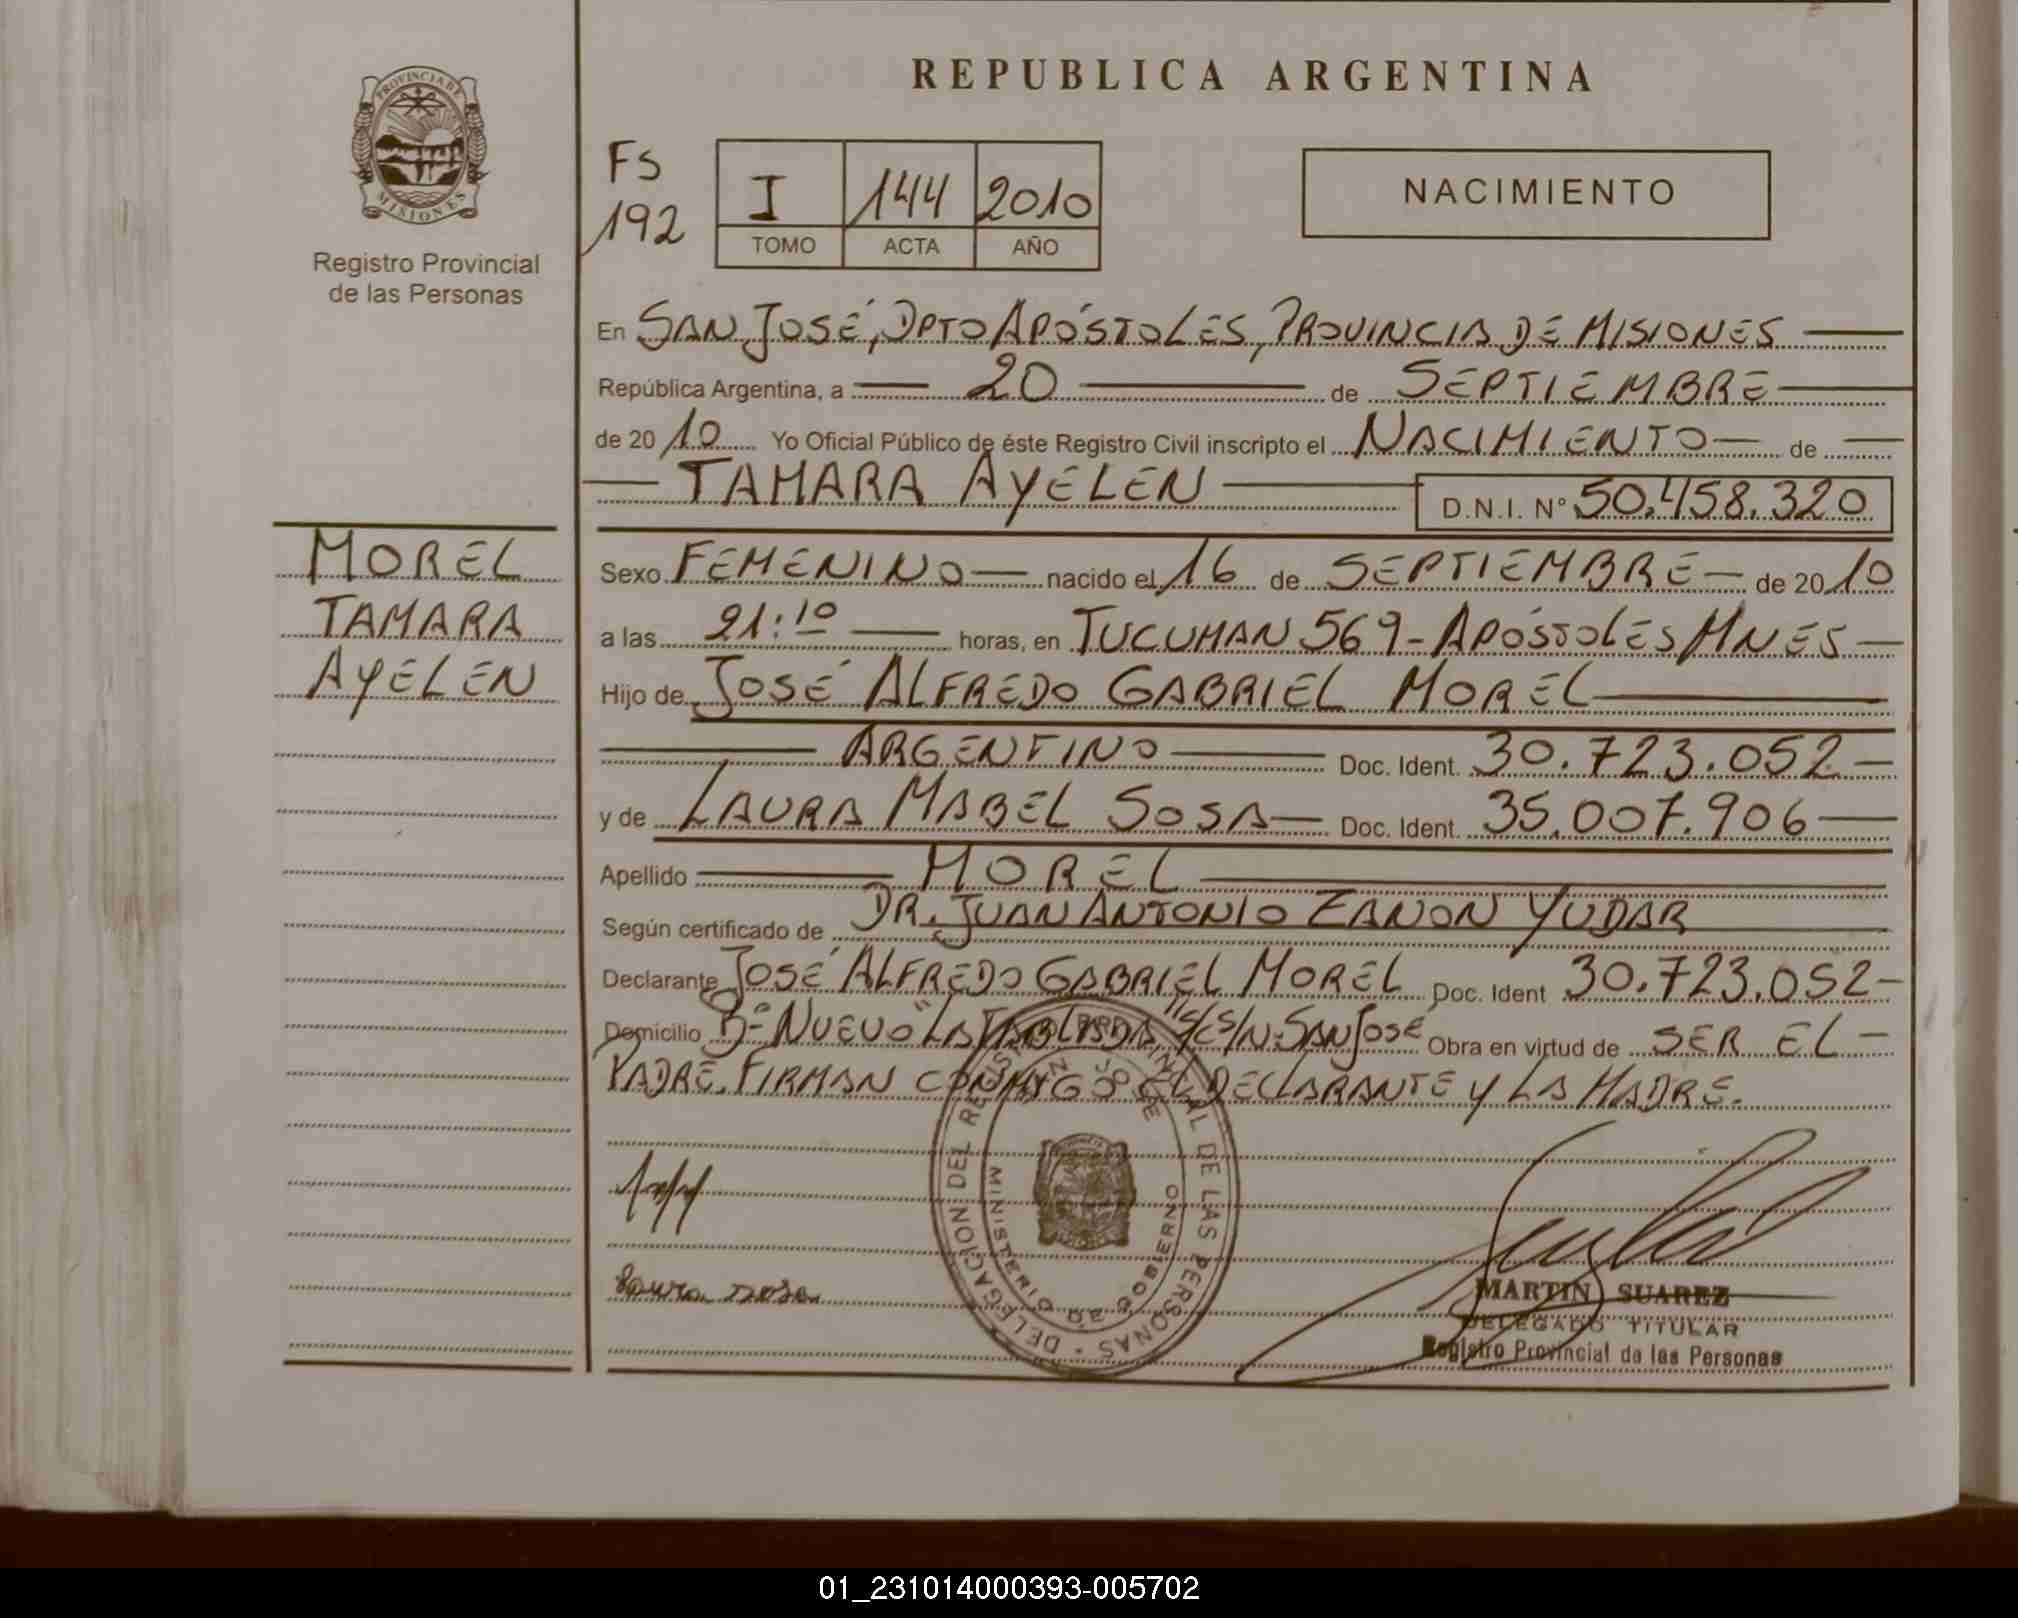 PROVINCIA DE
MISIONES
Registro Provincial
de las Personas
REPUBLICA ARGENTINA
FS
192
I 144 2010
TOMO ACTA AÑO
NACIMIENTO
En SAN JOSÉ, DPTO APÓSTOLES, PROVINCIA DE MISIONES
República Argentina, a 20 de SEPTIEMBRE
de 2010 Yo Oficial Público de éste Registro Civil inscripto el NACIMIENTO de
TAMARA AYELEN D.N.I. N° 50.458.320
MOREL
TAMARA
AYELEN
Sexo FEMENINO nacido el 16 de SEPTIEMBRE de 2010
a las 21:10 horas, en TUCUMAN 569 - APÓSTOLES MNES
Hijo de JOSÉ ALFREDO GABRIEL MOREL
ARGENTINO Doc. Ident. 30.723.052
y de LAURA MABEL SOSA Doc. Ident. 35.007.906
Apellido MOREL
Según certificado de DR. JUAN ANTONIO ZANON YUDAR
Declarante JOSÉ ALFREDO GABRIEL MOREL Doc. Ident 30.723.052
Domicilio B° NUEVO "LA TABLADA" S/C S/N. SAN JOSÉ Obra en virtud de SER EL
PADRE. FIRMAN CONMIGO EL DECLARANTE Y LA MADRE.
DELEGACION DEL REGISTRO PROVINCIAL DE LAS PERSONAS
SAN JOSE
MINISTERIO DE GOBIERNO
Laura Sosa
MARTIN SUAREZ
DELEGADO TITULAR
Registro Provincial de las Personas
01_231014000393-005702